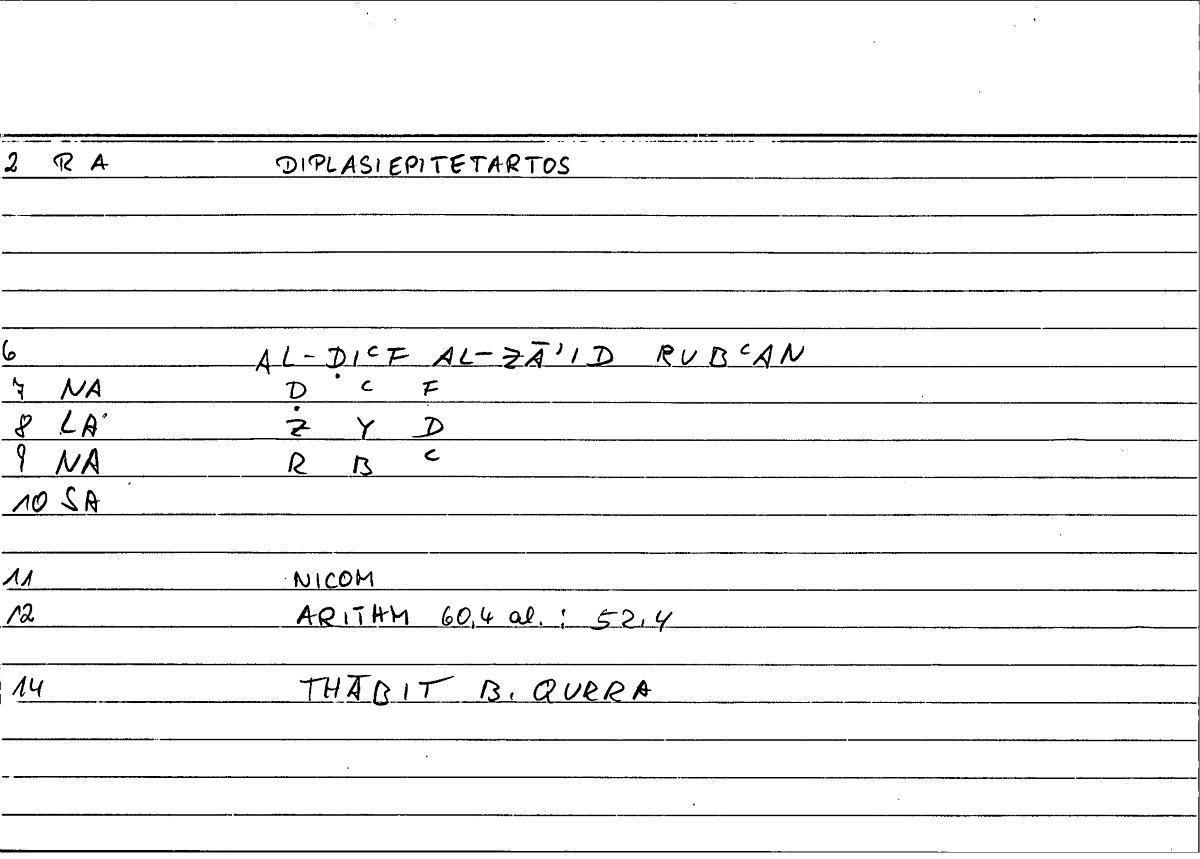 2 RA DIPLASIEPITETARTOS
6 AL-ḌIᶜF AL-ZĀ'ID RUBᶜAN
7 NA Ḍ ᶜ F
8 LA' Z Y D
9 NA R B ᶜ
10 SA
11 NICOM
12 ARITHM 60,4 al. : 52,4
14 THĀBIT B. QURRA